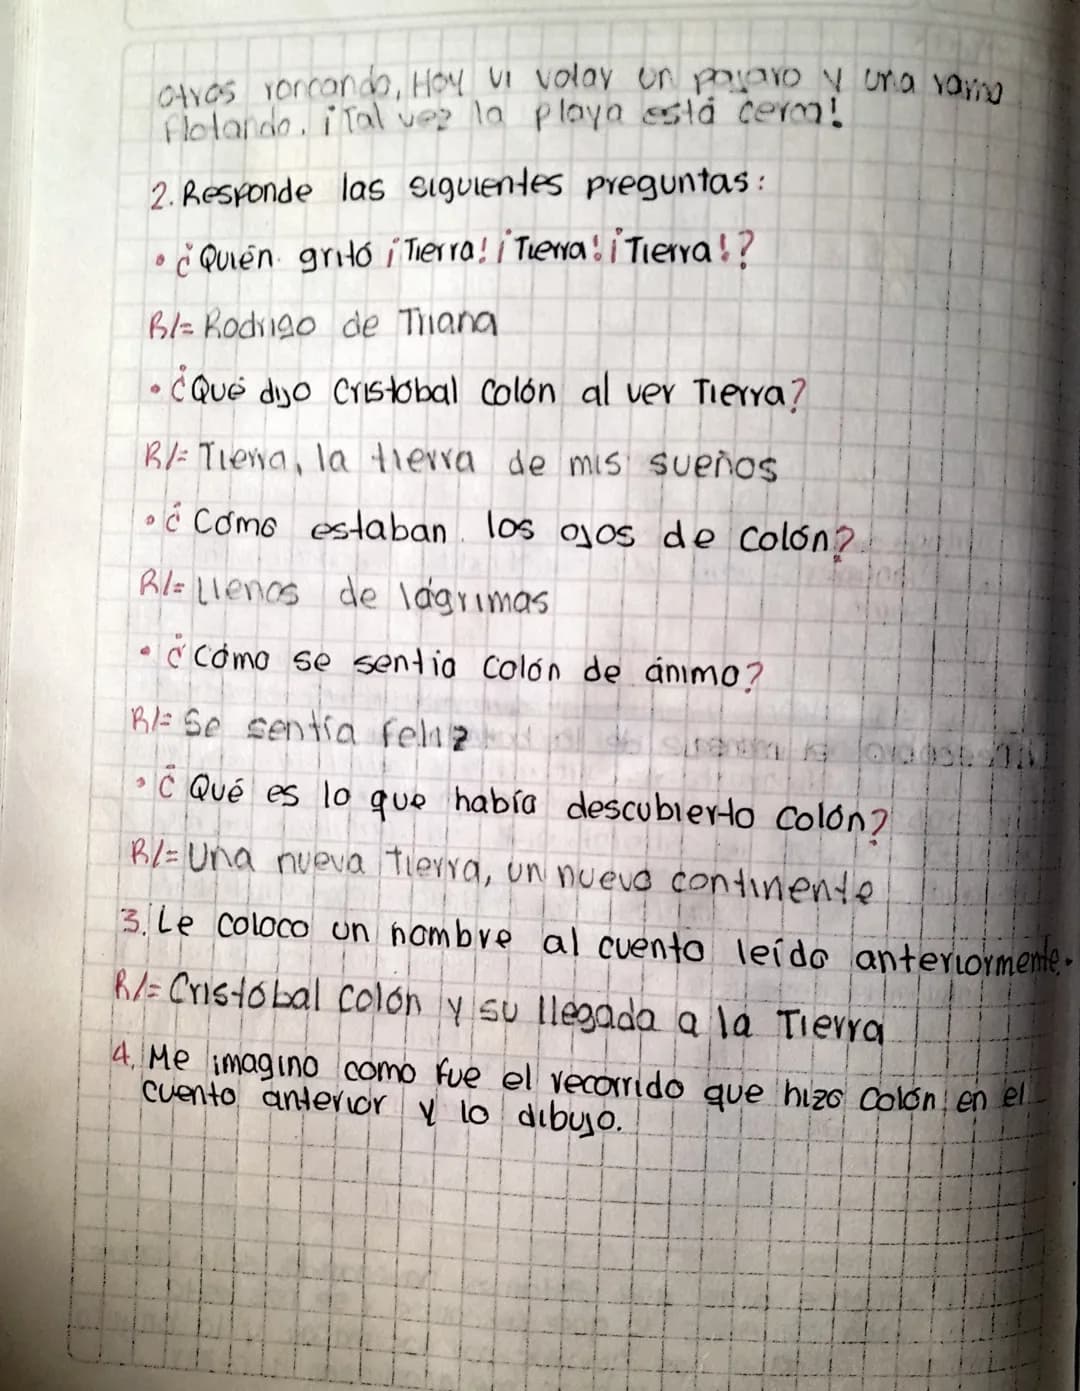 otros roncando, Hoy vi volar un pajaro y una rama
flotando. ¡Tal vez la playa está cerca!
2. Responde las siguientes preguntas:
• ¿Quién gritó ¡Tierra! ¡Tierra! ¡Tierra!?
R/= Rodrigo de Triana
• ¿Qué dijo Cristobal Colón al ver Tierra?
R/= Tierra, la tierra de mis sueños
• ¿Cómo estaban los ojos de Colón?
R/= Llenos de lágrimas
• ¿Cómo se sentia Colón de ánimo?
R/= Se sentía feliz
• ¿Qué es lo que había descubierto Colón?
R/= Una nueva tierra, un nuevo continente
3. Le coloco un nombre al cuento leído anteriormente.
R/= Cristóbal Colón y su llegada a la Tierra
4. Me imagino como fue el recorrido que hizo Colón en el
cuento anterior y lo dibujo.